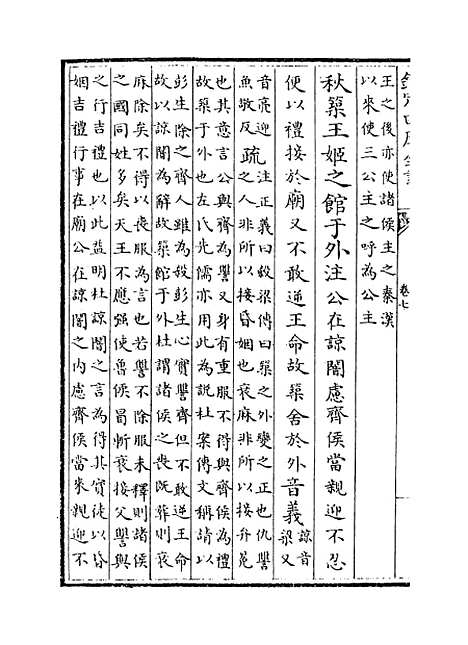 欽定四庫全書
卷七
王之後亦使諸侯主之秦漢
以來使三公主之呼為公主
秋築王姬之館于外注公在諒闇慮齊侯當親迎不忍
便以禮接於廟又不敢逆王命故築舍於外音義
諒音
梁又
音亮迎
魚敬反
疏
注正義曰穀梁傳曰築之外變之正也仇讐
之人非所以接昏姻也衰麻非所以接弁冕
也其意言公與齊為讐又身有重服不得與齊侯為禮
故築于外也左氏先儒亦用此為說杜案傳文稱請以
彭生除之齊人雖為殺彭生心實讐齊但不敢逆王命
故以諒闇為解故築館于外杜謂諸侯之喪既葬則衰
麻除矣不得以喪服為言也若讐不除服未釋則諸侯
之國同姓多矣天王不應強使魯侯冒斬衰接父讐與
之行吉禮也以此益明杜諒闇之言為得其實徒以昏
姻吉禮行事在廟公在諒闇之內慮齊侯當來親迎不